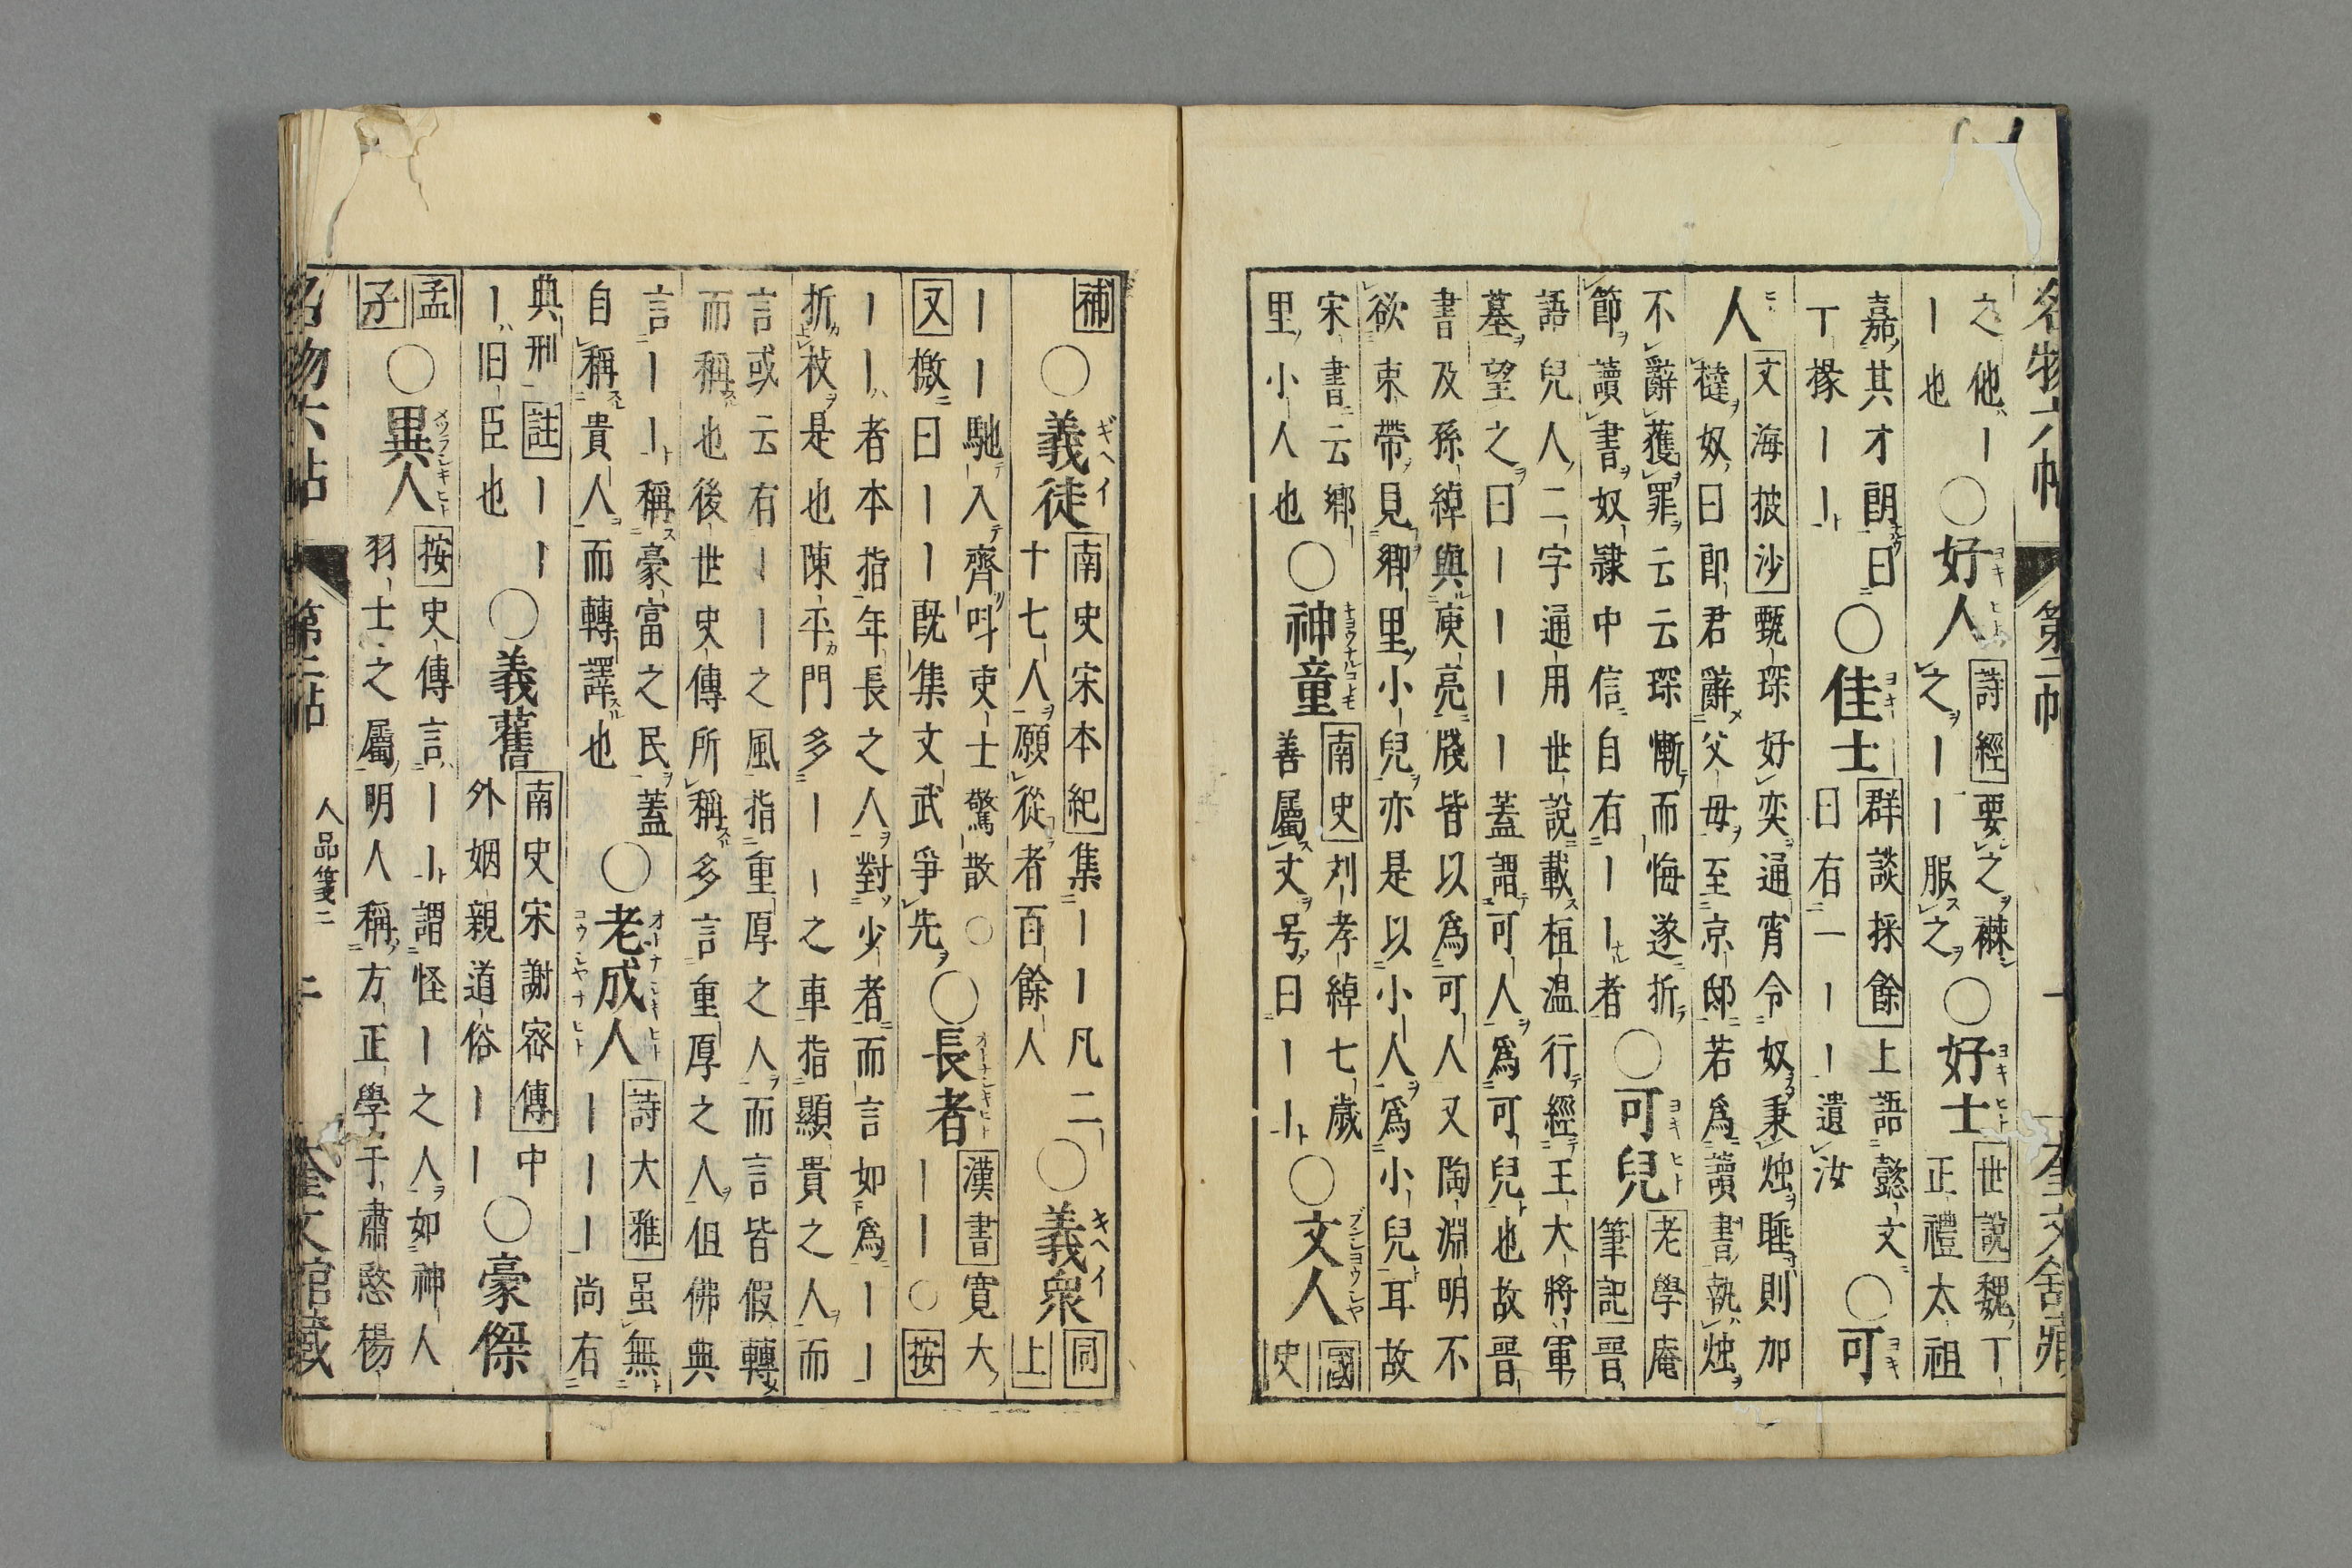 名物六帖 第二帖 一 奎文舘藏
之他ハ｜
｜也
〇好人 ヨキヒト
詩經 要之襋
之｜｜服之
〇好士 ヨキヒト
世說 魏丁
正禮太祖
嘉其才朗曰
丁掾｜｜
〇佳士 ヨキ
群談採餘 上語懿文
曰右一｜｜遺汝
〇可 ヨキ
人
文海披沙 甄琛好奕通宵令奴秉烛睡則加
撻奴曰郎君辭父母至京邸若爲讀書執烛
不辭獲罪云云琛慚而悔遂折
節讀書奴隸中信自有｜｜者
〇可兒 ヨキヒト
老學庵
筆記 晉
語兒人二字通用世說載桓温行經王大將軍
墓望之曰｜｜｜｜蓋謂可人爲可兒也故晉
書及孫綽與庾亮牋皆以爲可人又陶淵明不
欲束帶見鄉里小兒亦是以小人爲小兒耳故
宋書云鄉
里小人也
〇神童 キヨウナルコドモ
南史 刘孝綽七歲
善屬文号曰｜｜
〇文人 ブンシヨウシヤ
國
史
補
〇義徒 ギヘイ
南史宋本紀 集｜｜凡二
十七人願從者百餘人
〇義衆 キヘイ
同
上
｜｜馳入齊呌吏士驚散○
又 檄曰｜｜既集文武爭先
〇長者 オトナシキヒト
漢書 寛大
｜｜○按
｜｜者本指年長之人對少者而言如爲｜｜
折枝是也陳平門多｜｜之車指顯貴之人而
言或云有｜｜之風指重厚之人而言皆假轉
而稱也後世史傳所稱多言重厚之人但佛典
言｜｜稱豪富之民蓋
自稱貴人而轉譯也
〇老成人 オトナシキヒト コウシヤナヒト
詩大雅 虽無
｜｜｜尚有
典刑 註 ｜｜
｜旧臣也
〇義舊
南史宋謝宻傳 中
外姻親道俗｜｜
〇豪傑
孟
子
〇異人 メツラシキヒト
按 史傳言｜｜謂怪｜之人如神人
羽士之屬明人稱方正學于肅愍楊
名物六帖 第二帖 人品箋二 二 奎文舘藏